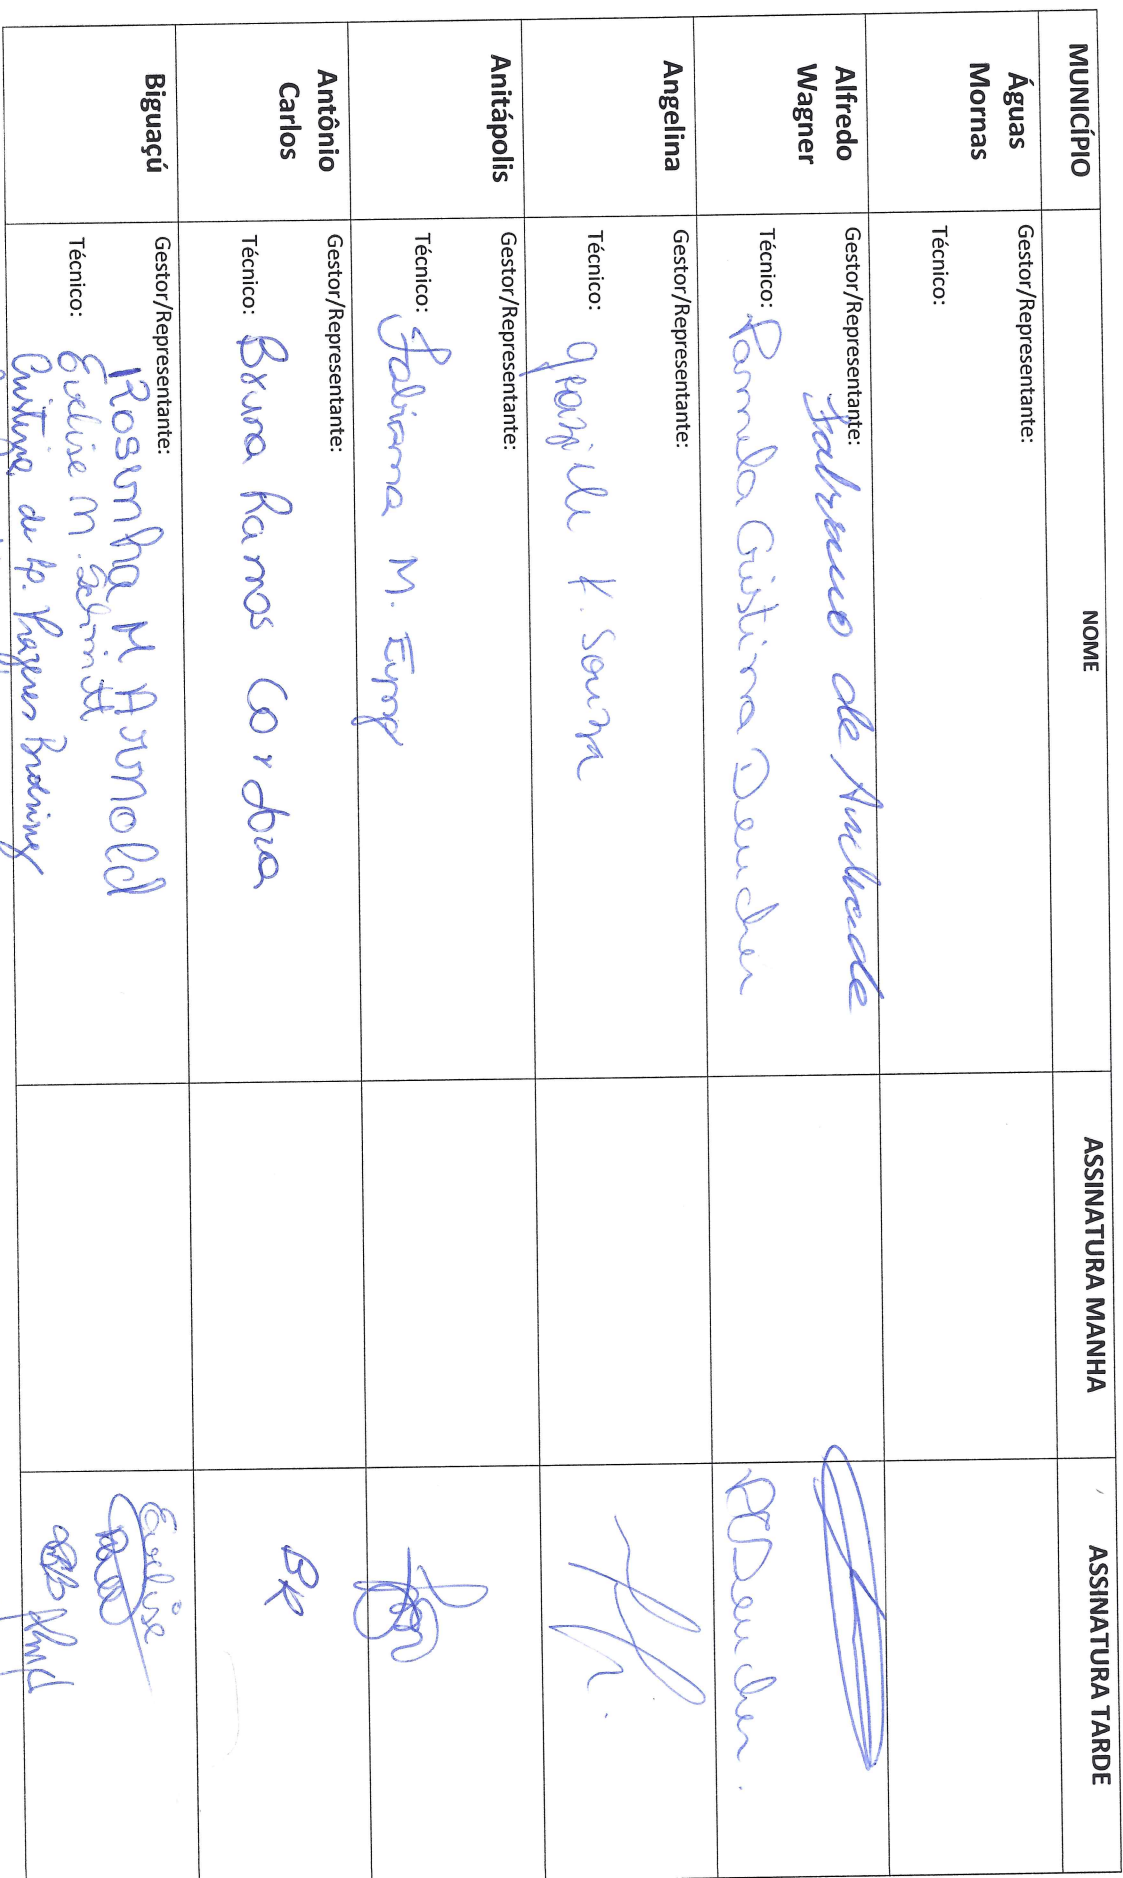 MUNICÍPIO NOME ASSINATURA MANHA ASSINATURA TARDE
Águas
Mornas
Gestor/Representante:
Técnico:
Alfredo
Wagner
Gestor/Representante: Fabiano de Andrade
Técnico: Pamela Cristina Deucher
PCDeucher.
Angelina
Gestor/Representante:
Técnico: K. Souza
Anitápolis
Gestor/Representante:
Técnico: Fabiana M.
Antônio
Carlos
Gestor/Representante:
Técnico: Bruna Ramos Cordova
BR
Biguaçú
Gestor/Representante: Rosinha M Arnold
Técnico: Evelise M. Schmitt
Cristina
Evelise